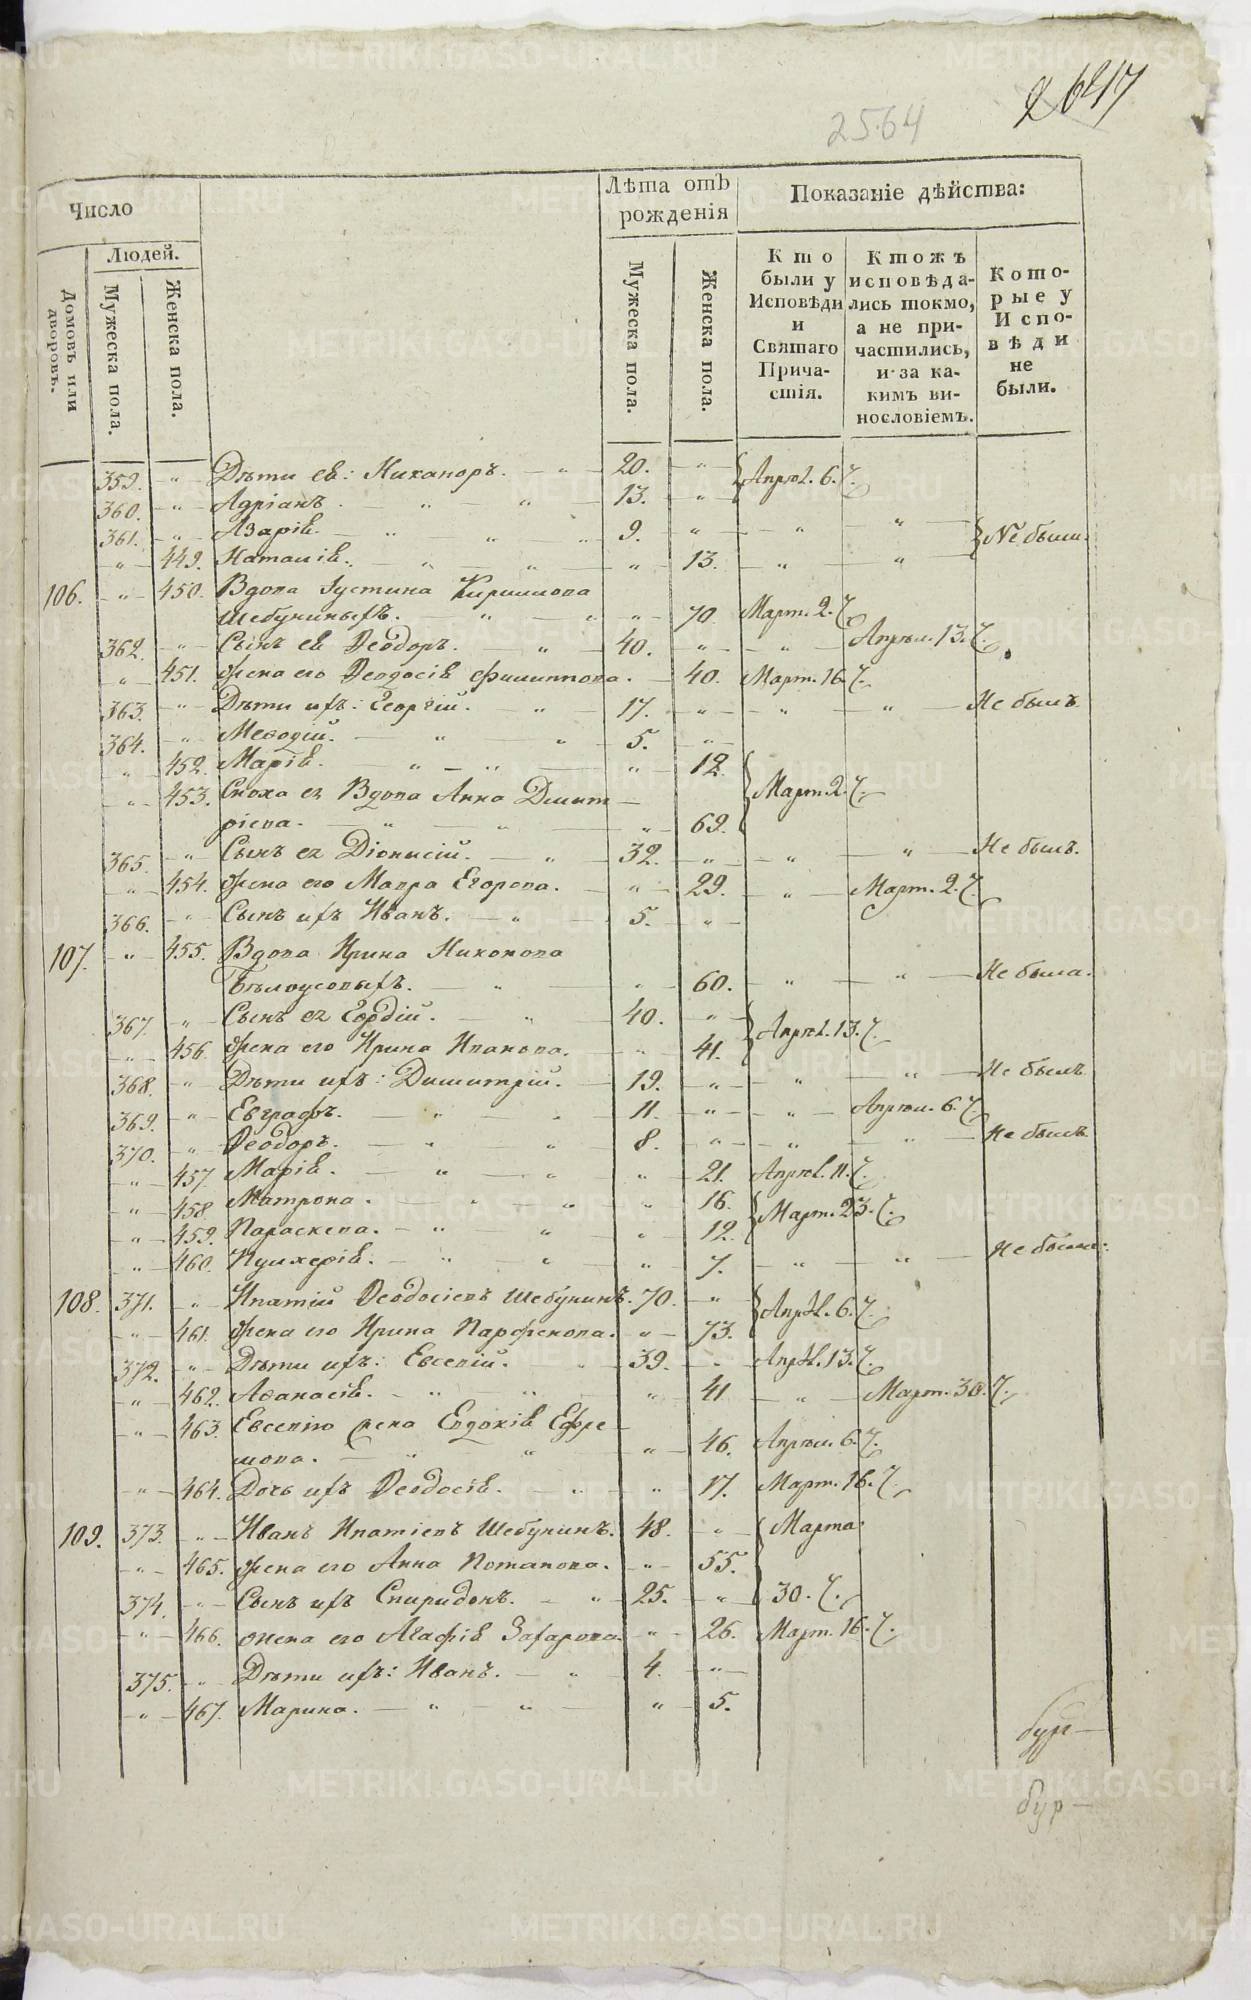 2564
Число
Лѣта отъ рожденія
Показаніе дѣйства:
Домовъ или дворовъ.
Людей.
Мужеска пола.
Женска пола.
Мужеска пола.
Женска пола.
Кто были у Исповѣди и Святаго Прича-стія.
Ктожъ исповѣда-лись токмо, а не при-частились, и за ка-кимъ ви-нословіемъ.
Кото-рые у Испо-вѣди не были.
359. „ Дѣти ев: Никаноръ. — „ — 20. — „ — Апрѣл. 6. ч.
360. „ Адріанъ. — „ — „ — 13. — „
361. „ Азарій. — „ — „ — 9. „ — „ — „ — Не были.
„ 449. Наталія. — „ — „ — „ 13. — „ — „
106. „ 450. Вдова Іустина Кириллова
Шебуниныхъ. — „ — „ — 70. Март. 2. ч.
362. „ Сынъ ея Ѳеодоръ. — „ — 40. „ — „ — Апрѣл. 13. ч.
„ 451. Жена его Ѳеодосія Филиппова. — 40. Март. 16. ч.
363. „ Дѣти ихъ: Георгій. — „ — 17. „ — „ — „ — Не былъ.
364. „ Меѳодій. — „ — „ 5. — „
„ 452. Марія. — „ — „ — „ 12.
„ 453. Сноха ея Вдова Анна Дмит— Март. 2. ч.
ріева. — „ — „ — „ 69.
365. „ Сынъ ея Діонисій. — „ — 32. „ — „ — „ — Не былъ.
„ 454. Жена его Мавра Егорова. — „ 29. „ — Март. 2. ч.
366. „ Сынъ ихъ Иванъ. — „ — 5. „
107. „ 455. Вдова Ирина Никонова
Бѣлоусовыхъ. — „ — „ 60. — „ — „ — Не была.
367. „ Сынъ ея Гордій. — „ — 40. „ Апрѣл. 13. ч.
„ 456. Жена его Ирина Иванова. — „ 41.
368. „ Дѣти ихъ: Димитрій. — 19. „ — „ — „ — Не былъ.
369. „ Евграфъ. — „ — „ 11. „ — „ — Апрѣл. 6. ч.
370. „ Ѳеодоръ. — „ — „ 8. „ — „ — „ — Не былъ.
„ 457. Марія. — „ — „ — „ 21. Апрѣл. 11. ч.
„ 458. Матрона. — „ — „ — „ 16. Март. 23. ч.
„ 459. Параскева. — „ — „ — „ 12.
„ 460. Пулхерія. — „ — „ — „ 7. — „ — „ — Не была.
108. 371. „ Ипатій Ѳеодосіевъ Шебунинъ. 70. „ Апрѣл. 6. ч.
„ 461. Жена его Ирина Парфенова. „ 73.
372. „ Дѣти ихъ: Евсевій. — 39. „ Апрѣл. 13. ч.
„ 462. Аѳанасія. — „ — „ — „ 41 — „ — Март. 30. ч.
„ 463. Евсевію жена Евдокія Ефре—
мова. — „ — „ — „ 46. Апрѣл. 6. ч.
„ 464. Дочь ихъ Ѳеодосія. — „ — „ 17. Март. 16. ч.
109. 373. „ Иванъ Ипатіевъ Шебунинъ. 48. „ Марта
„ 465. Жена его Анна Потапова. „ 55.
374. „ Сынъ ихъ Спиридонъ. — „ 25. „ 30. ч.
„ 466. жена его Агафія Захарова. „ 26. Март. 16. ч.
375. „ Дѣти ихъ: Иванъ. — „ 4. „
„ 467. Марина. — „ — „ — „ 5.
бур—